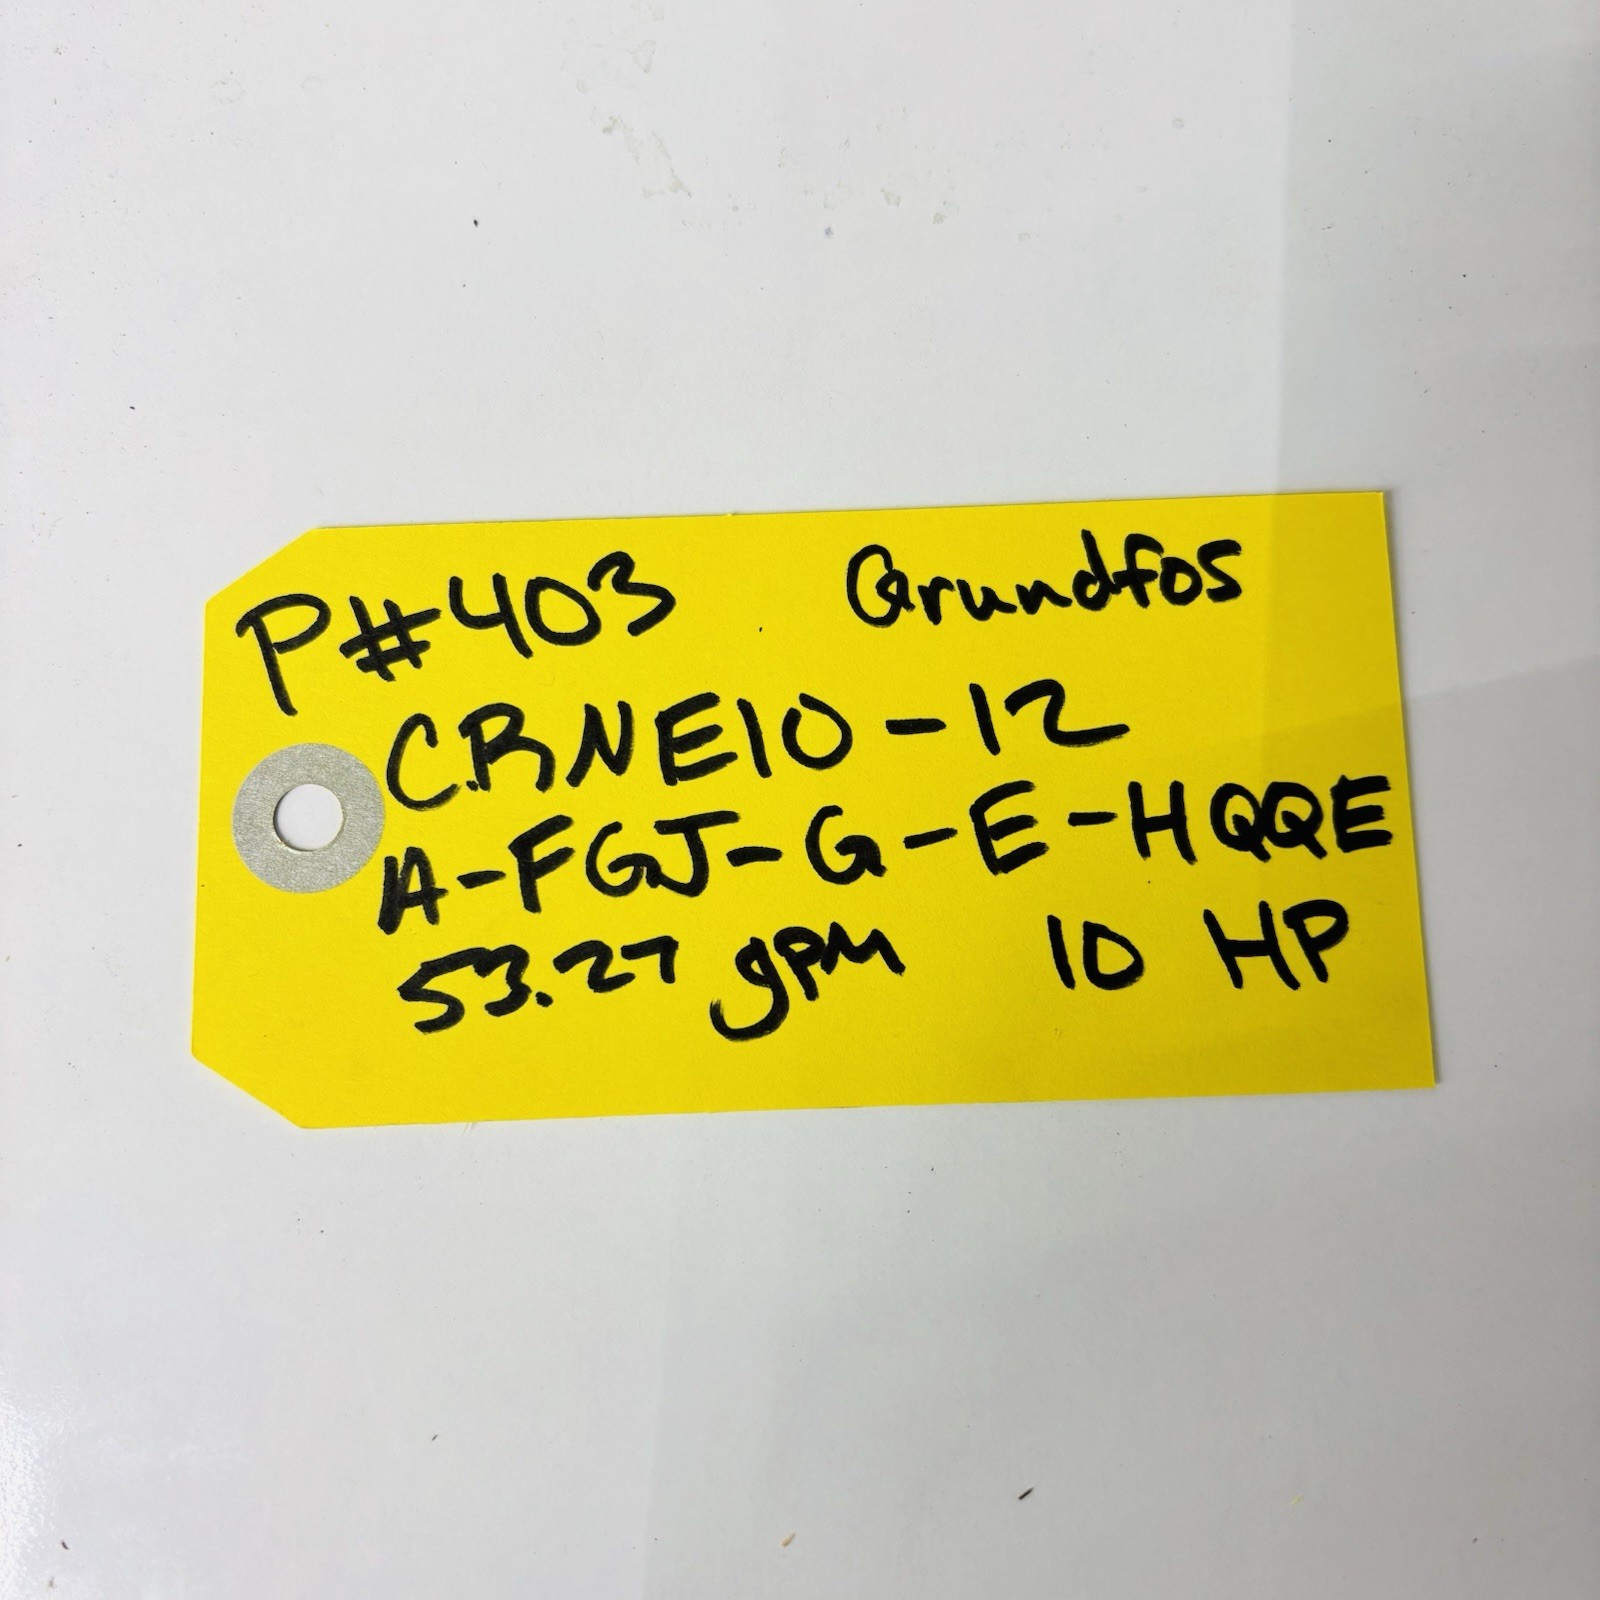 P#403 Grundfos
CRNE10-12
A-FGJ-G-E-HQQE
53.27 gpm 10 HP